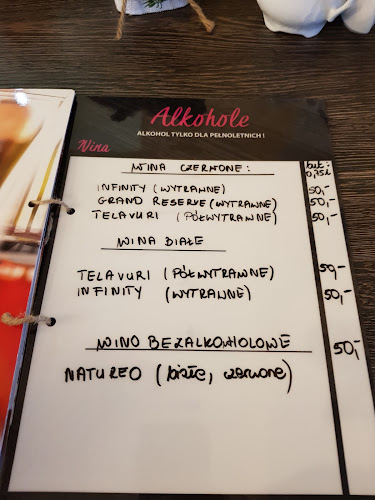 Alkohole
ALKOHOL TYLKO DLA PEŁNOLETNICH!
Wina
WINA CZERWONE: but. 0,75l
INFINITY (WYTRAWNE) 50,-
GRAND RESERVE (WYTRAWNE) 50,-
TELAVURI (PÓŁWYTRAWNE) 50,-
WINA BIAŁE
TELAVURI (PÓŁWYTRAWNE) 50,-
INFINITY (WYTRAWNE) 50,-
WINO BEZALKOHOLOWE 50,-
NATUREO (białe, czerwone)